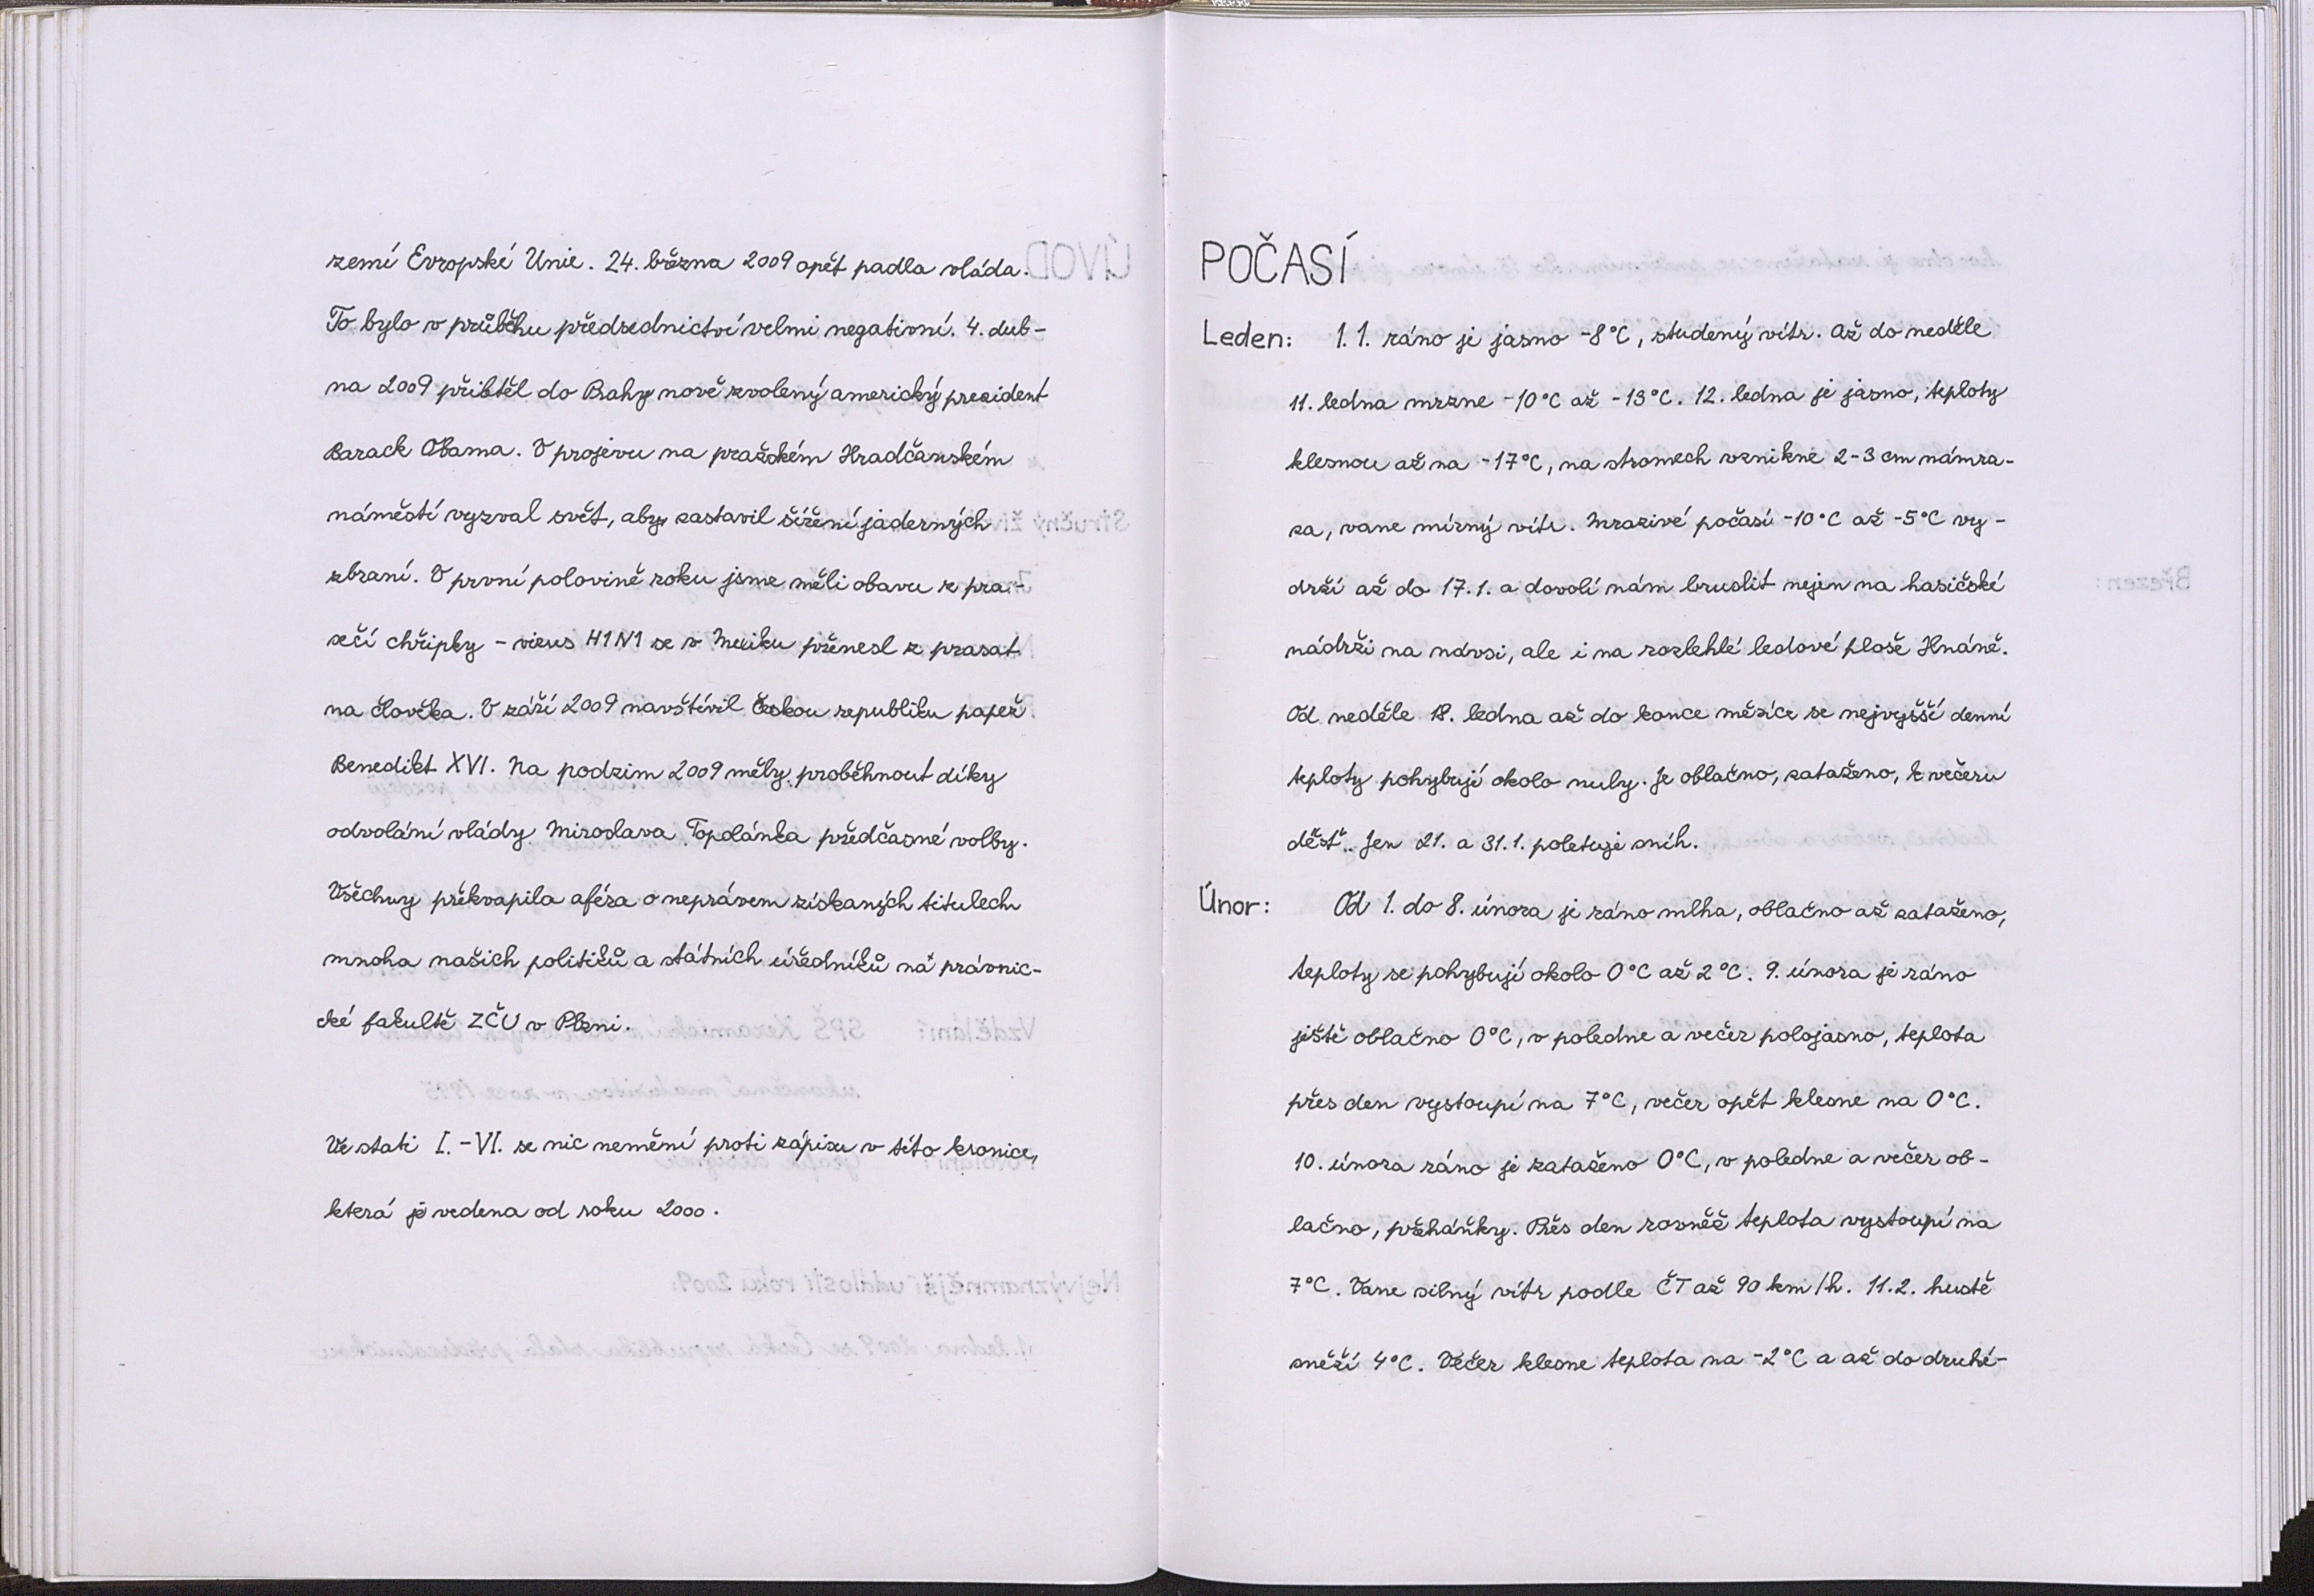 zemí Evropské Unie. 24. března 2009 opět padla vláda.
To bylo v průběhu předsednictví velmi negativní. 4. dub-
na 2009 přiletěl do Prahy nově zvolený americký prezident
Barack Obama. V projevu na pražském Hradčanském
náměstí vyzval svět, aby zastavil šíření jaderných
zbraní. V první polovině roku jsme měli obavu z pra-
sečí chřipky - virus H1N1 se v Mexiku přenesl z prasat
na člověka. V září 2009 navštívil Českou republiku papež
Benedikt XVI. Na podzim 2009 měly proběhnout díky
odvolání vlády Miroslava Topolánka předčasné volby.
Všechny překvapila aféra o neprávem získaných titulech
mnoha našich politiků a státních úředníků na právnic-
ké fakultě ZČU v Plzni.
Ve stati I. - VI. se nic nemění proti zápisu v této kronice,
která je vedena od roku 2000.
POČASÍ
Leden: 1. 1. ráno je jasno -8°C, studený vítr. Až do neděle
11. ledna mrzne -10°C až -13°C. 12. ledna je jasno, teploty
klesnou až na -17°C, na stromech vznikne 2-3 cm námra-
za, vane mírný vítr. Mrazivé počasí -10°C až -5°C vy-
drží až do 17. 1. a dovolí nám bruslit nejen na hasičské
nádrži na návsi, ale i na rozlehlé ledové ploše Hnáně.
Od neděle 18. ledna až do konce měsíce se nejvyšší denní
teploty pohybují okolo nuly. Je oblačno, zataženo, k večeru
déšť. Jen 21. a 31. 1. poletuje sníh.
Únor: Od 1. do 8. února je ráno mlha, oblačno až zataženo,
teploty se pohybují okolo 0°C až 2°C. 9. února je ráno
ještě oblačno 0°C, v poledne a večer polojasno, teplota
přes den vystoupí na 7°C, večer opět klesne na 0°C.
10. února ráno je zataženo 0°C, v poledne a večer ob-
lačno, přeháňky. Přes den rovněž teplota vystoupí na
7°C. Vane silný vítr podle ČT až 90 km/h. 11. 2. hustě
sněží 4°C. Večer klesne teplota na -2°C a až do druhé-